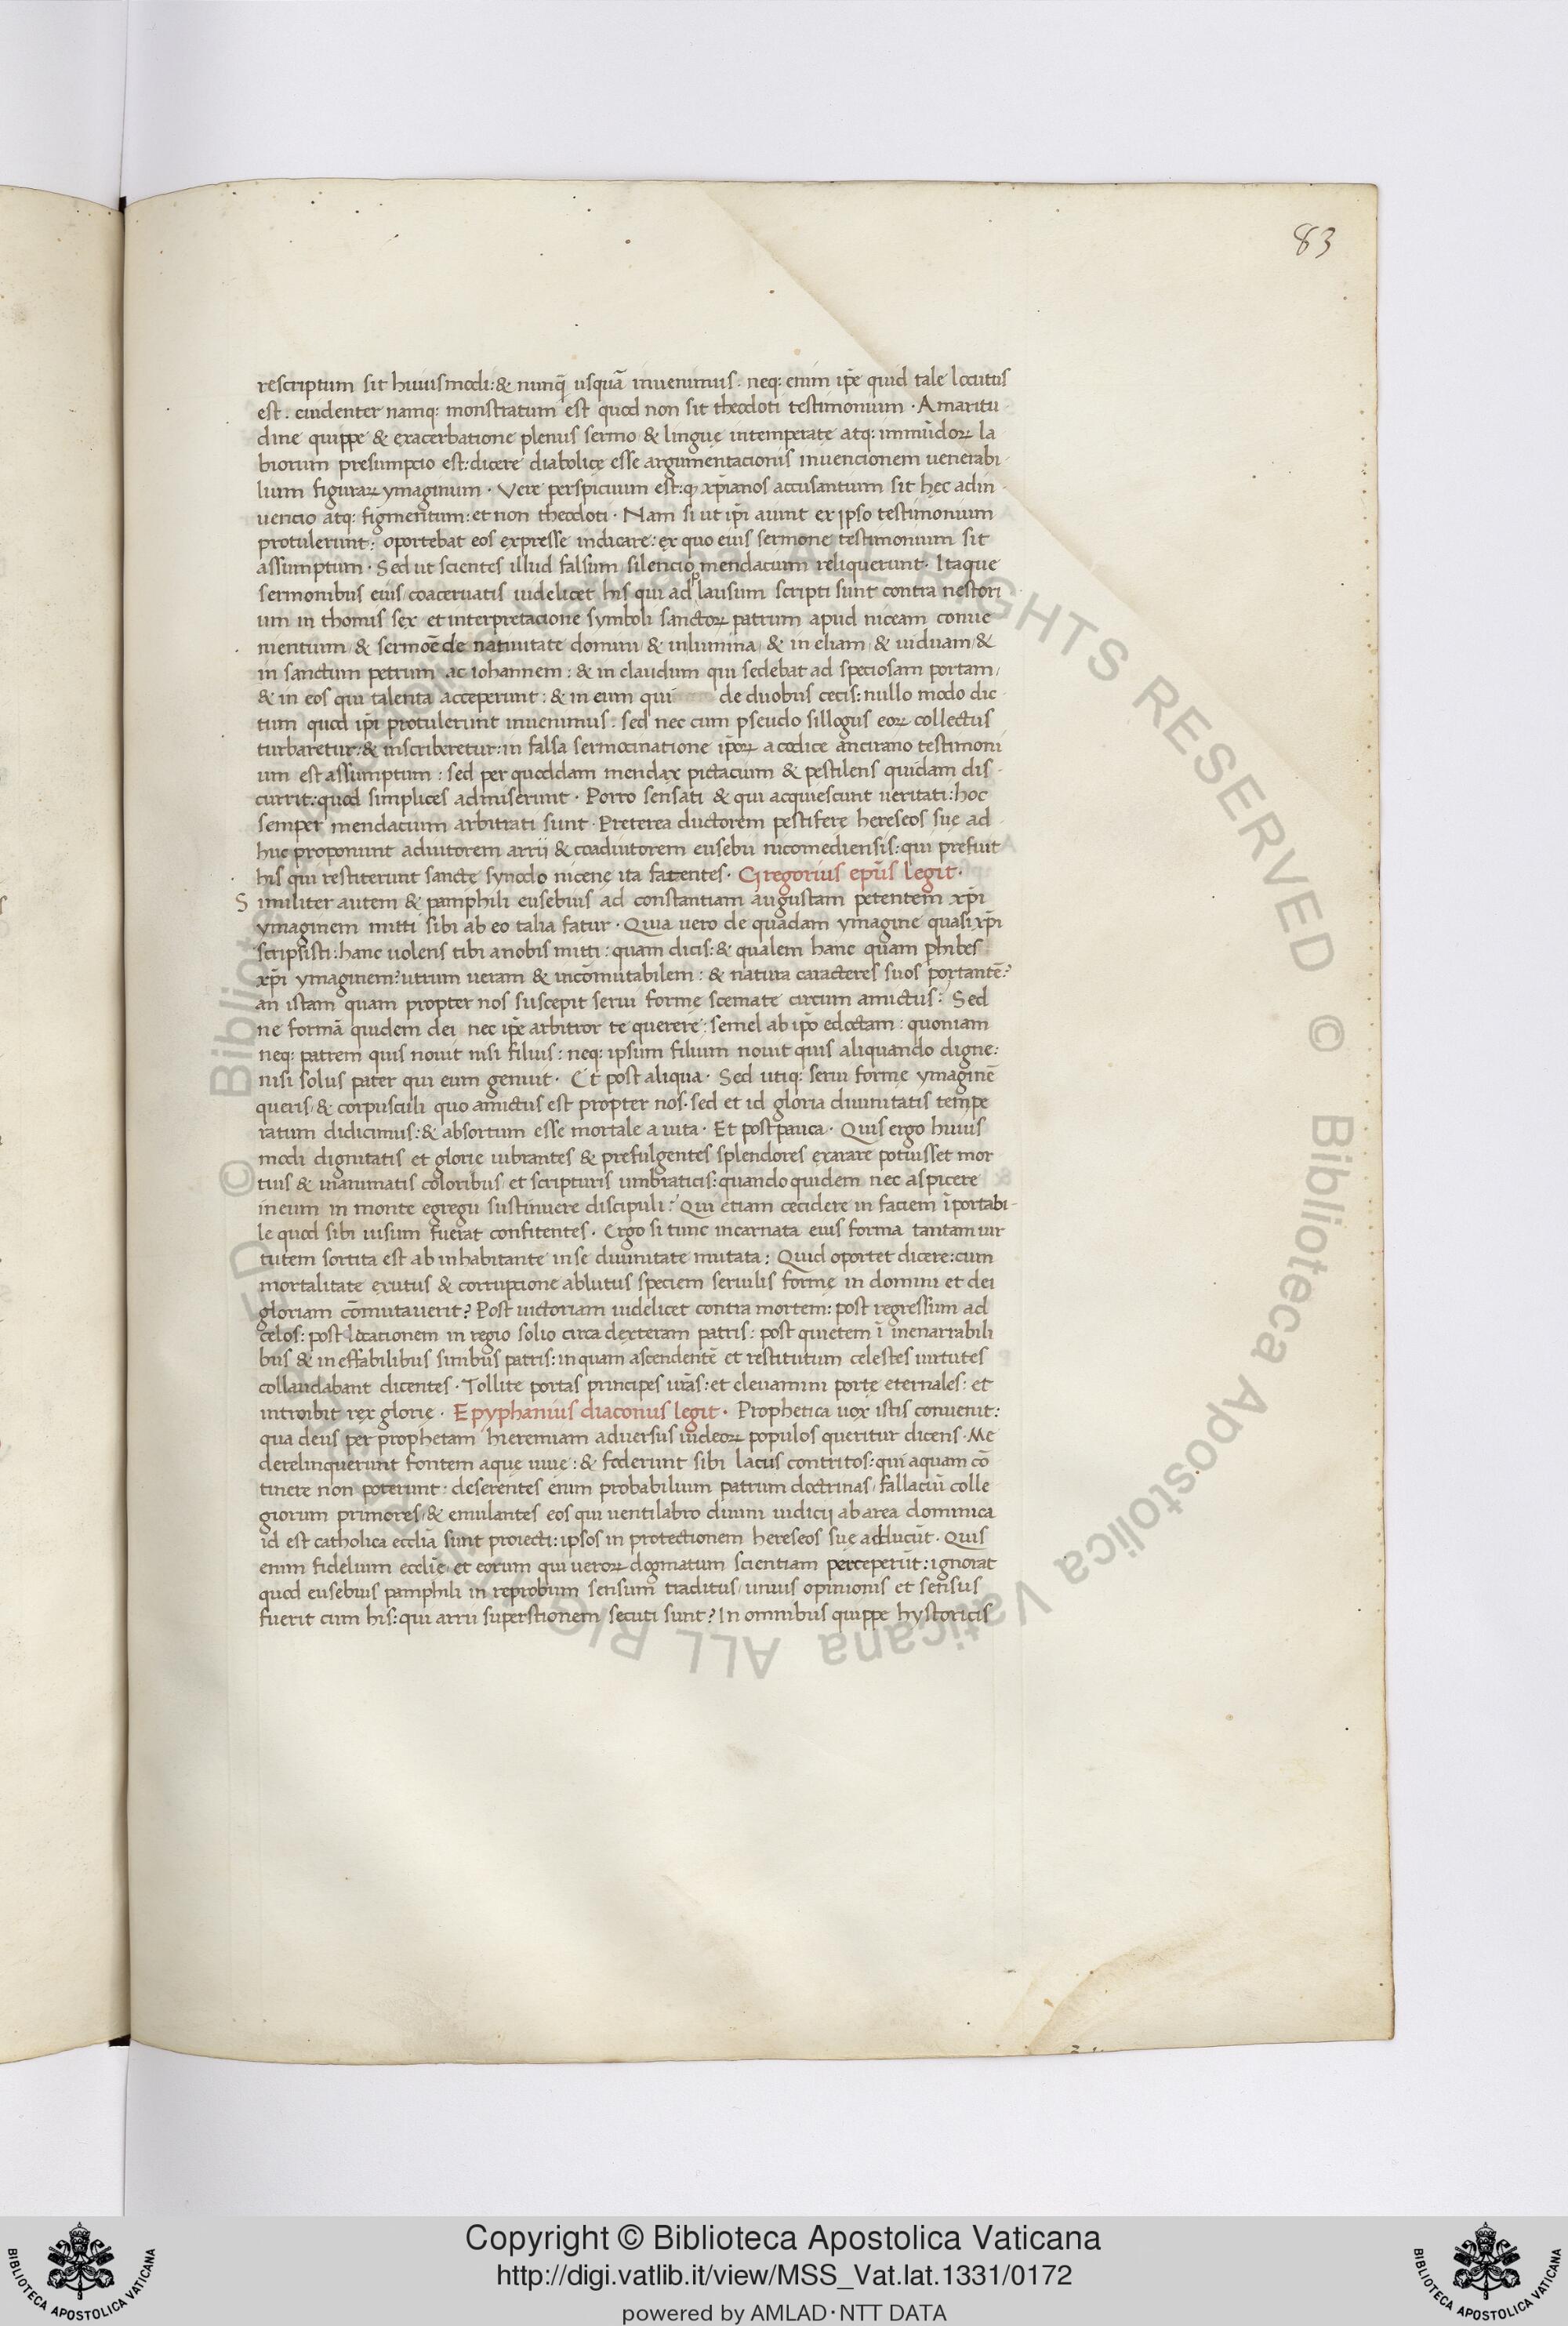 83
rescriptum sit huiusmodi: & nunq̃ usquã inuenimus. neq: enim ip̃e quid tale locutus
est. euidenter namq: monstratum est quod non sit theodoti testimonium · Amaritu
dine quippe & exacerbatione plenus sermo & lingue intemperate atq: immũdoꝝ la
biorum presumpcio est: dicere diabolicę esse argumentacionis inuencionem uenerabi-
lium figuraꝝ ymaginum · Vere perspicuum est: ꝙ xp̃ianos accusantium sit hęc adin-
uencio atq: figmentum: et non theodoti · Nam si ut ip̃i aiunt ex ipso testimonium
protulerunt: oportebat eos expresse indicare: ex quo eius sermone testimonium sit
assumptum · Sed ut scientes illud falsum silencio mendacium reliquerunt · Itaque
sermonibus eius coaceruatis uidelicet his qui ad plausum scripti sunt contra nestori
um in thomis sex et interpretacione symboli sanctoꝝ patrum apud niceam conue
nientium / & sermoẽ de natiuitate domini / & in lumina / & in eliam / & uiduam / &
in sanctum petrum ac iohannem: & in claudum qui sedebat ad speciosam portam /
& in eos qui talenta acceperunt: & in eum qui de duobus cecis: nullo modo dic
tum quod ip̃i protulerunt inuenimus: sed nec cum pseudo sillogus eoꝝ collectus
turbaretur: & inscriberetur: in falsa sermocinatione ip̃oꝝ a codice ancirano testimoni
um est assumptum: sed per quoddam mendax pictacium & pestilens quidam dis-
currit: quod simplices admiserunt · Porro sensati & qui acquiescunt ueritati: hoc
semper mendacium arbitrati sunt · Preterea ductorem pestiferę hereseos suę ad
huc proponunt adiutorem arrij & coadiutorem eusebii nicomediensis: qui prefuit
his qui restiterunt sanctę synodo nicenę ita fatentes · Gregorius ep̃us legit ·
Similiter autem & pamphili eusebius ad constantiam augustam petentem xp̃i
ymaginem mitti sibi ab eo talia fatur · Quia uero de quadam ymagine quasi xp̃i
scripsisti: hanc uolens tibi a nobis mitti: quam dicis: & qualem hanc quam phibes
xp̃i ymaginem? utrum ueram & incõmutabilem: & natura caracteres suos portantẽ?
an istam quam propter nos suscepit serui formę scemate circum amictus: Sed
ne formã quidem dei nec ip̃e arbitror te querere: semel ab ip̃o edoctam: quoniam
neq: patrem quis nouit nisi filius: neq: ipsum filium nouit quis aliquando digne:
nisi solus pater qui eum genuit · Et post aliqua · Sed utiq: serui formę ymaginẽ
queris / & corpusculi quo amictus est propter nos · sed et id gloria diuinitatis tempe
ratum didicimus: & absortum esse mortale a uita · Et post pauca · Quis ergo huius
modi dignitatis et glorie uibrantes & prefulgentes splendores exarare potuisset mor
tuis & inanimatis coloribus et scripturis umbraticis: quando quidem nec aspicere
in eum in monte egregii sustinuere discipuli: Qui etiam cecidere in faciem ĩportabi-
le quod sibi uisum fuerat confitentes · Ergo si tunc incarnata eius forma tantam uir
tutem sortita est ab inhabitante in se diuinitate mutata: Quid oportet dicere: cum
mortalitate exutus & corrupcione ablutus speciem seruilis formę in domini et dei
gloriam cõmutauerit? Post uictoriam uidelicet contra mortem: post regressum ad
cęlos: post locationem in regio solio circa dexteram patris: post quietem ĩ inenarrabili
bus & in effabilibus sinibus patris: in quam ascendentẽ et restitutum celestes uirtutes
collaudabant dicentes · Tollite portas principes ur̃as: et eleuamini portę eternales: et
introibit rex glorię · Epyphanius diaconus legit · Prophetica uox istis conuenit:
qua deus per prophetam hieremiam aduersus iudeoꝝ populos queritur dicens · Me
derelinquerunt fontem aque uiue: & foderunt sibi lacus contritos: qui aquam cõ
tinere non poterunt: deserentes enim probabilium patrum doctrinas / fallaciũ colle
giorum primores / & emulantes eos qui uentilabro diuini iudicij ab area dominica
id est catholica eccl̃ia sunt proiecti: ipsos in protectionem hereseos suę adducũt · Quis
enim fidelium eccl̃ię / et eorum qui ueroꝝ dogmatum scientiam perceperũt: ignorat
quod eusebius pamphili in reprobum sensum traditus / unius opinionis et sensus
fuerit cum his: qui arrii superstionem secuti sunt? In omnibus quippe hystoricis
Copyright © Biblioteca Apostolica Vaticana
http://digi.vatlib.it/view/MSS_Vat.lat.1331/0172
powered by AMLAD·NTT DATA
BIBLIOTECA APOSTOLICA VATICANA
BIBLIOTECA APOSTOLICA VATICANA